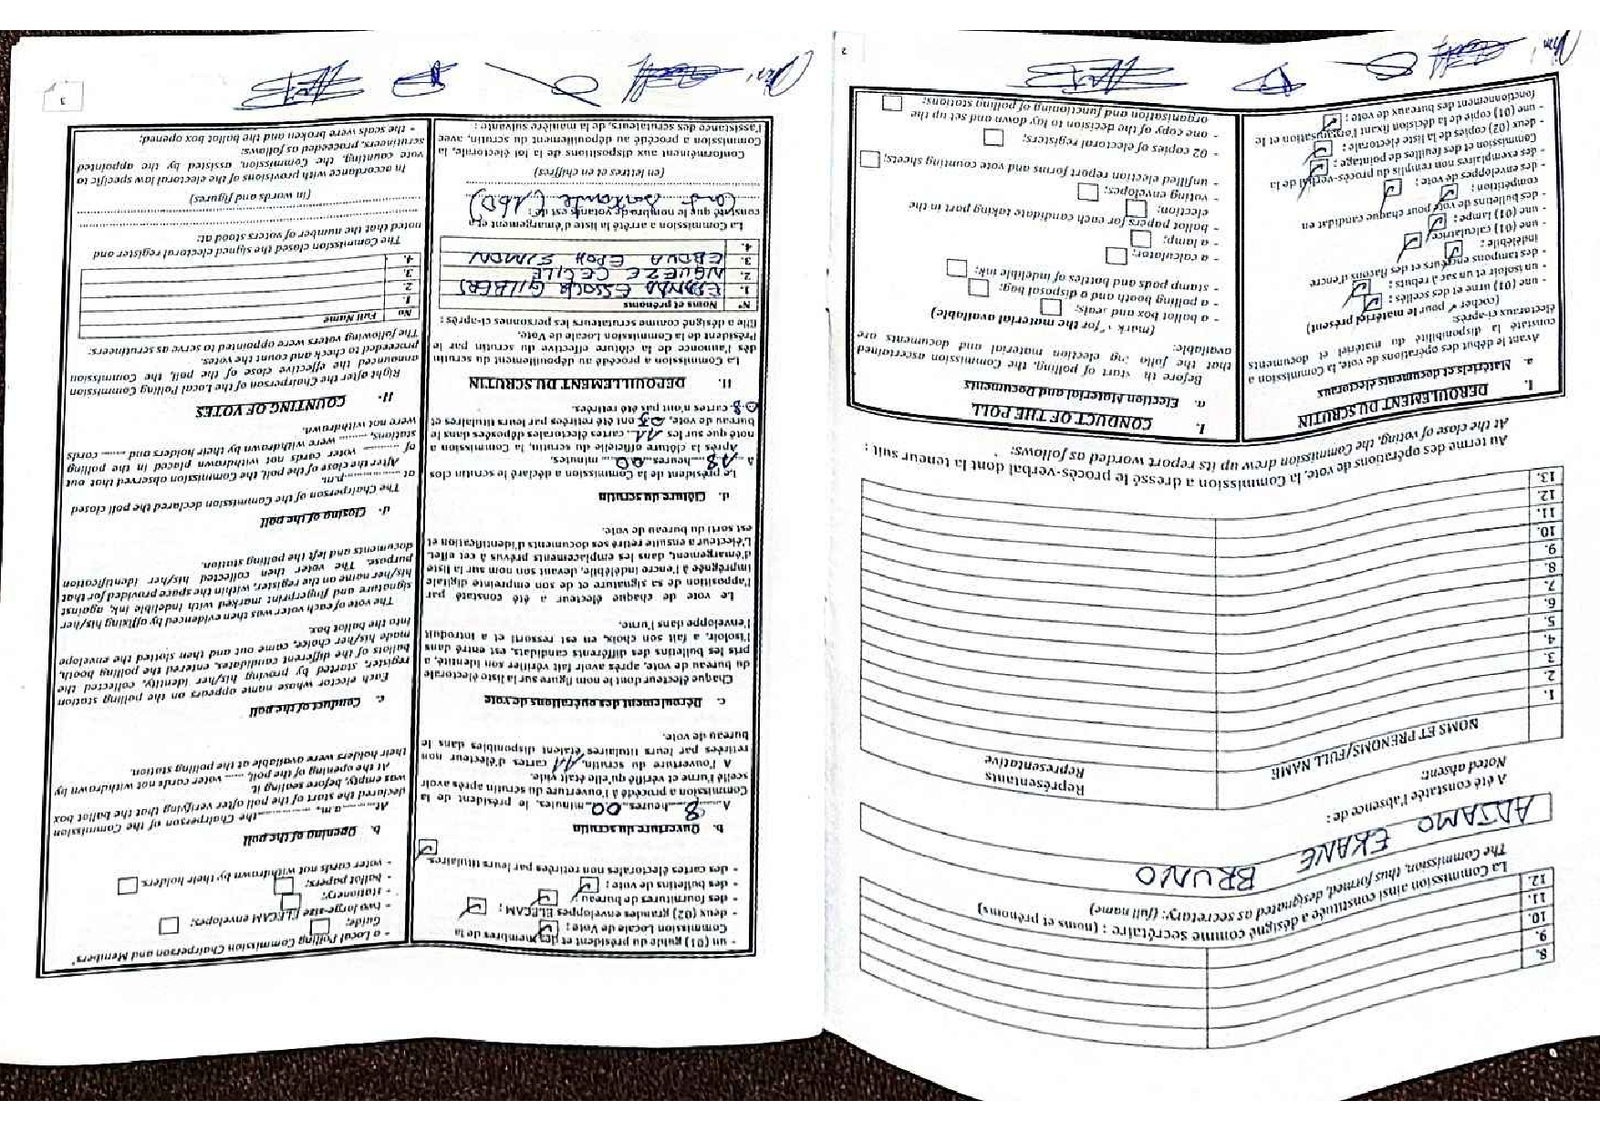 8.
9.
10.
11.
12.
La Commission ainsi constituée a désigné comme secrétaire : (noms et prénoms)
The Commission, thus formed, designated as secretary: (full name)
ADJAMO EKANE BRUNO
A été constatée l'absence de :
Noted absent:
NOMS ET PRENOMS/FULL NAME
Représentants
Representative
1.
2.
3.
4.
5.
6.
7.
8.
9.
10.
11.
12.
13.
Au terme des opérations de vote, la Commission a dressé le procès-verbal dont la teneur suit :
At the close of voting, the Commission drew up its report worded as follows:
I. DEROULEMENT DU SCRUTIN
a. Matériels et documents électoraux
Avant le début des opérations de vote, la Commission a
constaté la disponibilité du matériel et documents
électoraux ci-après:
(cocher ✓ pour le matériel présent)
- une (01) urne et des scellés :
- un isoloir et un sac à rebuts :
- des tampons encreurs et des flacons d'encre
indélébile :
- une (01) calculatrice
- une (01) lampe :
- des bulletins de vote pour chaque candidat en
compétition :
- des enveloppes de vote :
- des exemplaires non remplis du procès-verbal de la
Commission et des feuilles de pointage :
- deux (02) copies de la liste électorale :
- une (01) copie de la décision fixant l'organisation et le
fonctionnement des bureaux de vote :
I. CONDUCT OF THE POLL
a. Election Material and Documents
Before th start of polling, the Commission ascertained
that the follo ing election material and documents are
available:
(mark ✓ for the material available)
- a ballot box and seals;
- a polling booth and a disposal bag;
- stamp pads and bottles of indelible ink;
- a calculator;
- a lamp;
- ballot papers for each candidate taking part in the
election;
- voting envelopes;
- unfilled election report forms and vote counting sheets;
- 02 copies of electoral registers;
- one copy of the decision to lay down and set up the
organisation and functioning of polling stations;
2
- un (01) guide du président et des membres de la
Commission Locale de Vote :
- deux (02) grandes enveloppes ELECAM :
- des fournitures de bureau :
- des bulletins de vote :
- des cartes électorales non retirées par leurs titulaires.
b. Ouverture du scrutin
A 8 heures 00 minutes, le président de la
Commission a procédé à l'ouverture du scrutin après avoir
scellé l'urne et vérifié qu'elle était vide.
A l'ouverture du scrutin, 11 cartes d'électeur non
retirées par leurs titulaires étaient disponibles dans le
bureau de vote.
c. Déroulement des opérations de vote
Chaque électeur dont le nom figure sur la liste électorale
du bureau de vote, après avoir fait vérifier son identité, a
pris les bulletins des différents candidats, est entré dans
l'isoloir, a fait son choix, en est ressorti et a introduit
l'enveloppe dans l'urne.
Le vote de chaque électeur a été constaté par
l'apposition de sa signature et de son empreinte digitale
imprégnée à l'encre indélébile, devant son nom sur la liste
d'émargement, dans les emplacements prévus à cet effet.
L'électeur a ensuite retiré ses documents d'identification et
est sorti du bureau de vote.
d. Clôture du scrutin
Le président de la Commission a déclaré le scrutin clos
à 18 heures 00 minutes.
Après la clôture officielle du scrutin, la Commission a
noté que sur les 11 cartes électorales déposées dans le
bureau de vote, 03 ont été retirées par leurs titulaires et
08 cartes n'ont pas été retirées.
II. DEROULEMENT DU SCRUTIN
La Commission a procédé au dépouillement du scrutin
dès l'annonce de la clôture effective du scrutin par le
Président de la Commission Locale de Vote.
Elle a désigné comme scrutateurs les personnes ci-après :
N° Noms et prénoms
1. EBANDA ESSOCK GILBERT
2. NGUEZE CECILE
3. EBOUA EPOH SIMON
4.
La Commission a arrêté la liste d'émargement et a
constaté que le nombre de votants est de :
Cent soixante (160)
(en lettres et en chiffres)
Conformément aux dispositions de la loi électorale, la
Commission a procédé au dépouillement du scrutin, avec
l'assistance des scrutateurs, de la manière suivante :
- a Local Polling Commission Chairperson and Members'
Guide;
- two large-size ELECAM envelopes;
- stationery;
- ballot papers;
- voter cards not withdrawn by their holders.
b. Opening of the poll
At ........ a.m, ........ the Chairperson of the Commission
declared the start of the poll after verifying that the ballot box
was empty, before sealing it.
At the opening of the poll, ..... voter cards not withdrawn by
their holders were available at the polling station.
c. Conduct of the poll
Each elector whose name appears on the polling station
register, started by proving his/her identity, collected the
ballots of the different candidates, entered the polling booth,
made his/her choice, came out and then slotted the envelope
into the ballot box.
The vote of each voter was then evidenced by affixing his/her
signature and fingerprint marked with indelible ink, against
his/her name on the register, within the space provided for that
purpose. The voter then collected his/her identification
documents and left the polling station.
d. Closing of the poll
The Chairperson of the Commission declared the poll closed
at ............ p.m.
After the close of the poll, the Commission observed that out
of ........ voter cards not withdrawn placed in the polling
stations, ........ were withdrawn by their holders and ........ cards
were not withdrawn.
II- COUNTING OF VOTES
Right after the Chairperson of the Local Polling Commission
announced the effective close of the poll, the Commission
proceeded to check and count the votes.
The following voters were appointed to serve as scrutineers:
No Full Name
1.
2
3.
4.
The Commission closed the signed electoral register and
noted that the number of voters stood at:
(in words and figures)
In accordance with provisions of the electoral law specific to
vote counting, the Commission, assisted by the appointed
scrutineers, proceeded as follows:
- the seals were broken and the ballot box opened;
3